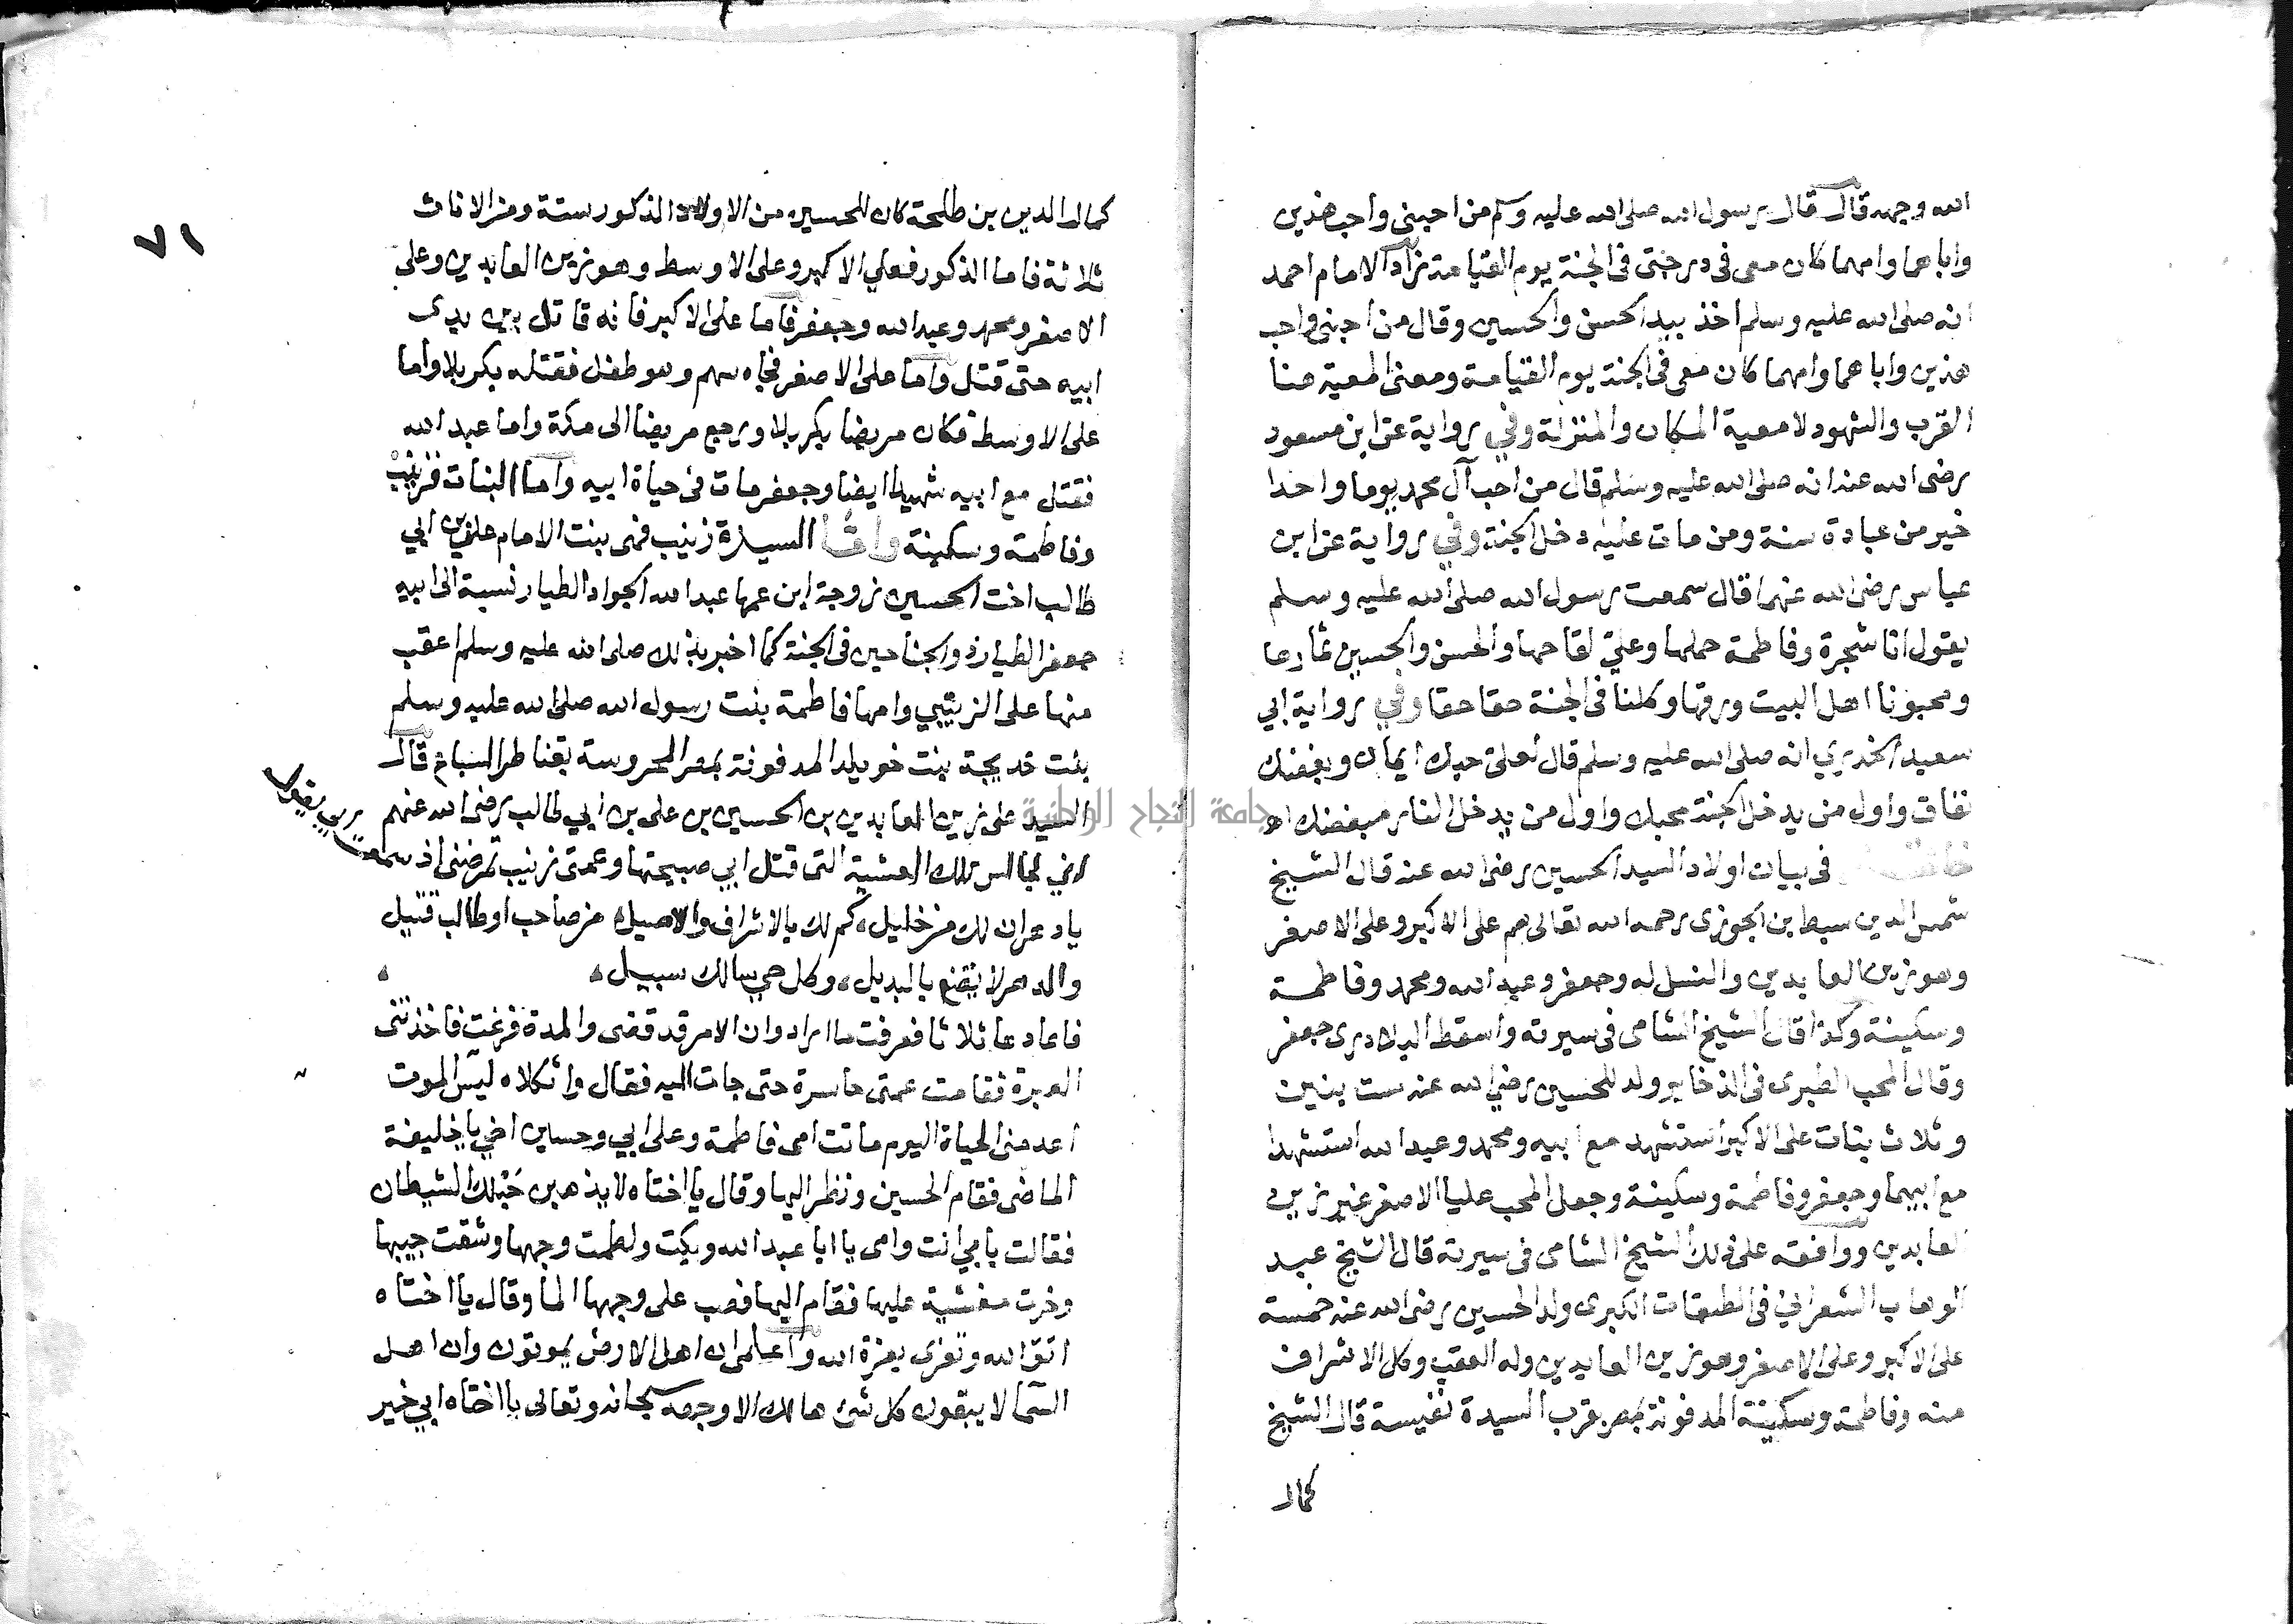 الله وجهه قال قال رسول الله صلى الله عليه وسلم من احبني واحب هذين
واباهما وامهما كان معي في درجتي في الجنة يوم القيامة زاد الامام احمد
انه صلى الله عليه وسلم اخذ بيد الحسن والحسين وقال من احبني واحب
هذين واباهما وامهما كان معي في الجنة يوم القيامة ومعنى المعية هنا
القرب والشهود لا معية المكان والمنزلة وفي رواية عن ابن مسعود
رضى الله عنه انه صلى الله عليه وسلم قال من احب آل محمد يوما واحدا
خير من عبادة سنة ومن مات عليه دخل الجنة وفي رواية عن ابن
عباس رضى الله عنهما قال سمعت رسول الله صلى الله عليه وسلم
يقول انا شجرة وفاطمة حملها وعلي لقاحها والحسن والحسين ثمارها
ومحبونا اهل البيت ورقها وكلنا في الجنة حقا حقا وفي رواية ابي
سعيد الخدري انه صلى الله عليه وسلم قال لعلي حبك ايمان وبغضك
نفاق واول من يدخل الجنة محبك واول من يدخل النار مبغضك اهـ
في بيان اولاد السيد الحسين رضى الله عنه قال الشيخ
شمس الدين سبط بن الجوزى رحمه الله تعالى هم على الاكبر وعلى الاصغر
وهو زين العابدين والنسل له وجعفر وعبد الله ومحمد وفاطمة
وسكينة وكذا قال الشيخ الشامى في سيرته واسقط البلادرى جعفر
وقال المحب الطبرى في الذخاير ولد للحسين رضي الله عنه ست بنين
وثلاث بنات على الاكبر استشهد مع ابيه ومحمد وعبد الله استشهدا
مع ابيهما وجعفر وفاطمة وسكينة وجعل المحب عليا الاصغر غير زين
العابدين ووافقه على ذلك الشيخ الشامى في سيرته قال الشيخ عبد
الوهاب الشعراني في الطبقات الكبرى ولد الحسين رضى الله عنه خمسة
على الاكبر وعلى الاصغر وهو زين العابدين وله العقب وكل الاشراف
منه وفاطمة وسكينة المدفونة بمصر بقرب السيدة نفيسة قال الشيخ
كمال
٧١
كمال الدين بن طلحة كان للحسين من الاولاد الذكور ستة ومن الاناث
ثلاثة فاما الذكور فعلي الاكبر وعلى الاوسط وهو زين العابدين وعلي
الاصغر ومحمد وعبد الله وجعفر فاما على الاكبر فانه قاتل بين يدى
ابيه حتى قتل واما على الاصغر فجاه سهم وهو طفل فقتله بكربلا واما
على الاوسط فكان مريضا بكربلا ورجع مريضا الى مكة واما عبد الله
فقتل مع ابيه شهيدا ايضا وجعفر مات في حياة ابيه واما البنات فزينب
وفاطمة وسكينة واما السيدة زينب فهى بنت الامام على بن ابي
طالب اخت الحسين زوجة ابن عمها عبد الله الجواد الطيار نسبة الى ابيه
جعفر الطيار ذو الجناحين في الجنة كما اخبر بذلك صلى الله عليه وسلم اعقب
منها على الزينبي وامها فاطمة بنت رسول الله صلى الله عليه وسلم
بنت خديجة بنت خويلد المدفونة بمصر المحروسة بقناطر السباع قال
السيد على زين العابدين بن الحسين بن على بن ابي طالب رضى الله عنهم
اني لجالس تلك العشية التى قتل ابي صبيحتها وعمتى زينب تمرضنى اذ سمعت ابي يقول
يا دهر ان لك من خليل، كم لك بالاشراف والاصيل، من صاحب او طالب قتيل
والدهر لا يقنع بالبديل، وكل حي سالك سبيل
فاعادها ثلاثا فعرفت ما اراد وان الامر قد قضى والمدة فرغت فاخذتنى
العبرة فقامت عمتى حاسرة حتى جات اليه فقال واثكلاه ليس الموت
اعدمنى الحياة اليوم ماتت امى فاطمة وعلى ابي وحسين اخي يا خليفة
الماضى فقام الحسين ونظر اليها وقال يا اختاه لا يذهبن حلمك الشيطان
فقالت بابي انت وامى يا ابا عبد الله وبكت ولطمت وجهها وشقت جيبها
وخرت مغشية عليها فقام اليها فصب على وجهها الما وقال يا اختاه
اتق الله وتعزى بعزة الله واعلمى ان اهل الارض يموتون وان اهل
السما لا يبقون كل شئ هالك الا وجهه سبحانه وتعالى يا اختاه ابي خير
جامعة النجاح الوطنية